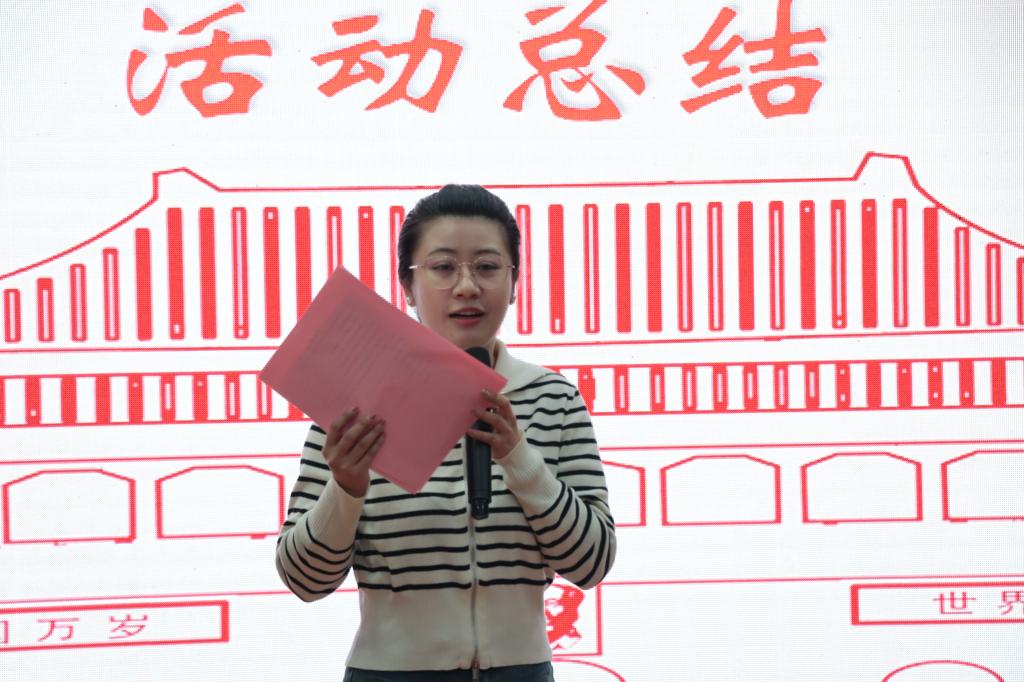 活动总结
万岁
世界